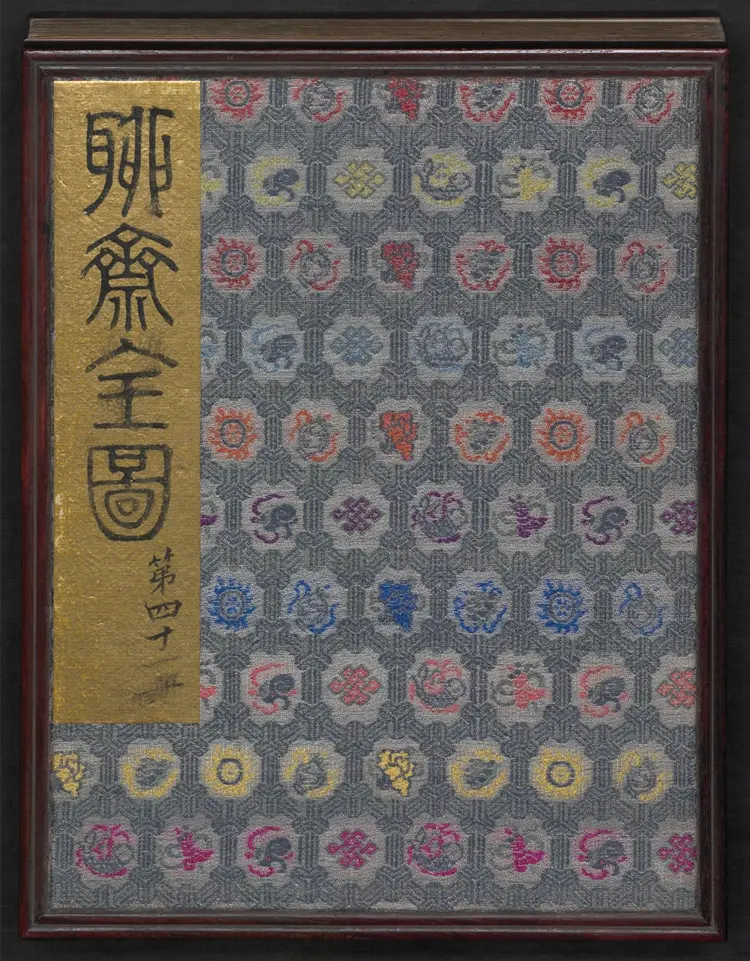 聊齋全圖
第四十一冊